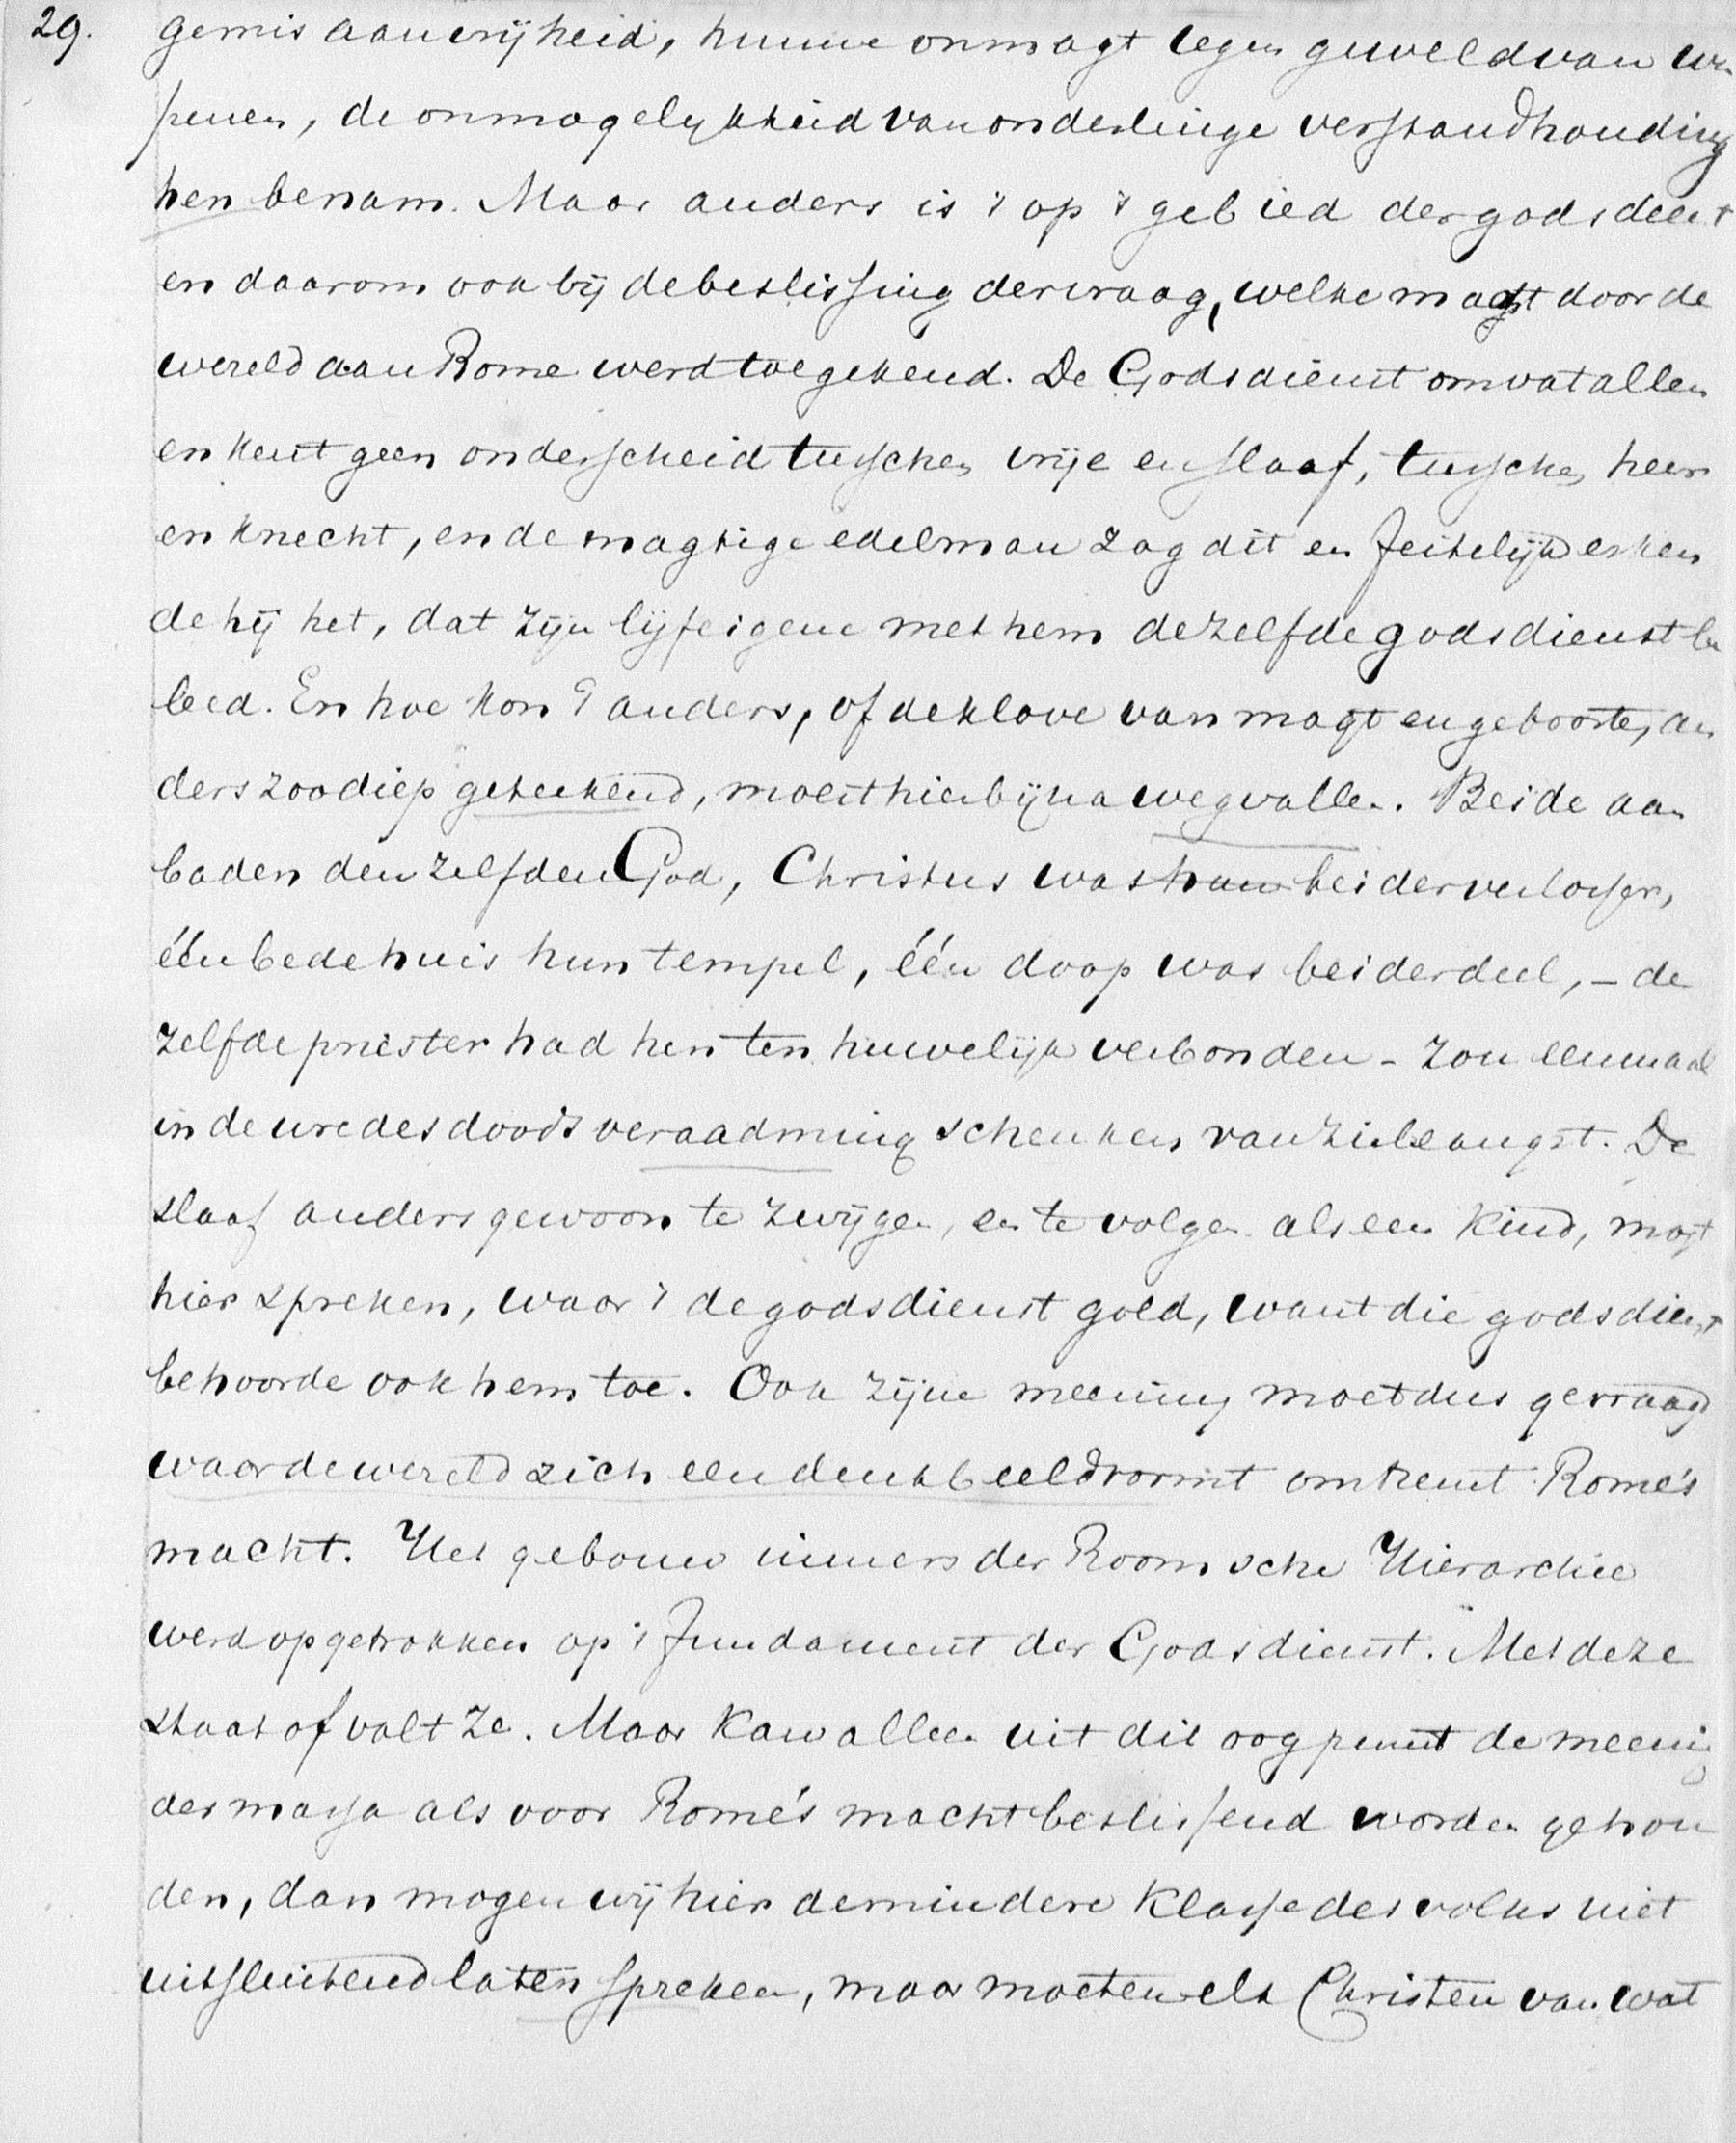 29.
gemis aan vrijheid, hunne onmagt tegen geweld van wa
penen, de onmogelykheid van onderlinge verstandhouding
hen benam. Maar anders is 't op 't gebied der godsdienst
en daarom ook bij de beslissing der vraag, welke magt door de
wereld aan Rome werd toegekend. De Godsdienst omvat allen
en kent geen onderscheid tusschen vrije en slaaf, tusschen heer
en knecht, en de magtige edelman zag dit en feitelijk erken
de hij het, dat zijn lijfeigene met hem dezelfde godsdienst be
leed. En hoe kon 't anders, of de klove van magt en geboorte, an
ders zoo diep geteekend, moest hier bijna wegvallen. Beide aan
baden denzelfden God, Christus was hun beider verlosser,
één bedehuis hun tempel, één doop was beider deel, - de
zelfde priester had hen ten huwelijk verbonden - zou eenmaal
in de ure des doods verademing schenken van zielsangst. De
slaaf anders gewoon te zwijgen, en te volgen als een kind, mogt
hier spreken, waar 't de godsdienst gold, want die godsdienst
behoorde ook hem toe. Ook zijne meening moet dus gevraagd
waar de wereld zich een denkbeeld vormt omtrent Rome's
macht. Het gebouw immers der Roomsche Hierarchie
werd opgetrokken op 't fundament der Godsdienst. Met deze
staat of valt ze. Maar kan alleen uit dit oogpunt de meening
der massa als voor Rome's macht beslissend worden gehou
den, dan mogen wij hier de mindere klasse des volks niet
uitsluitend laten spreken, maar moeten elk Christen van wat